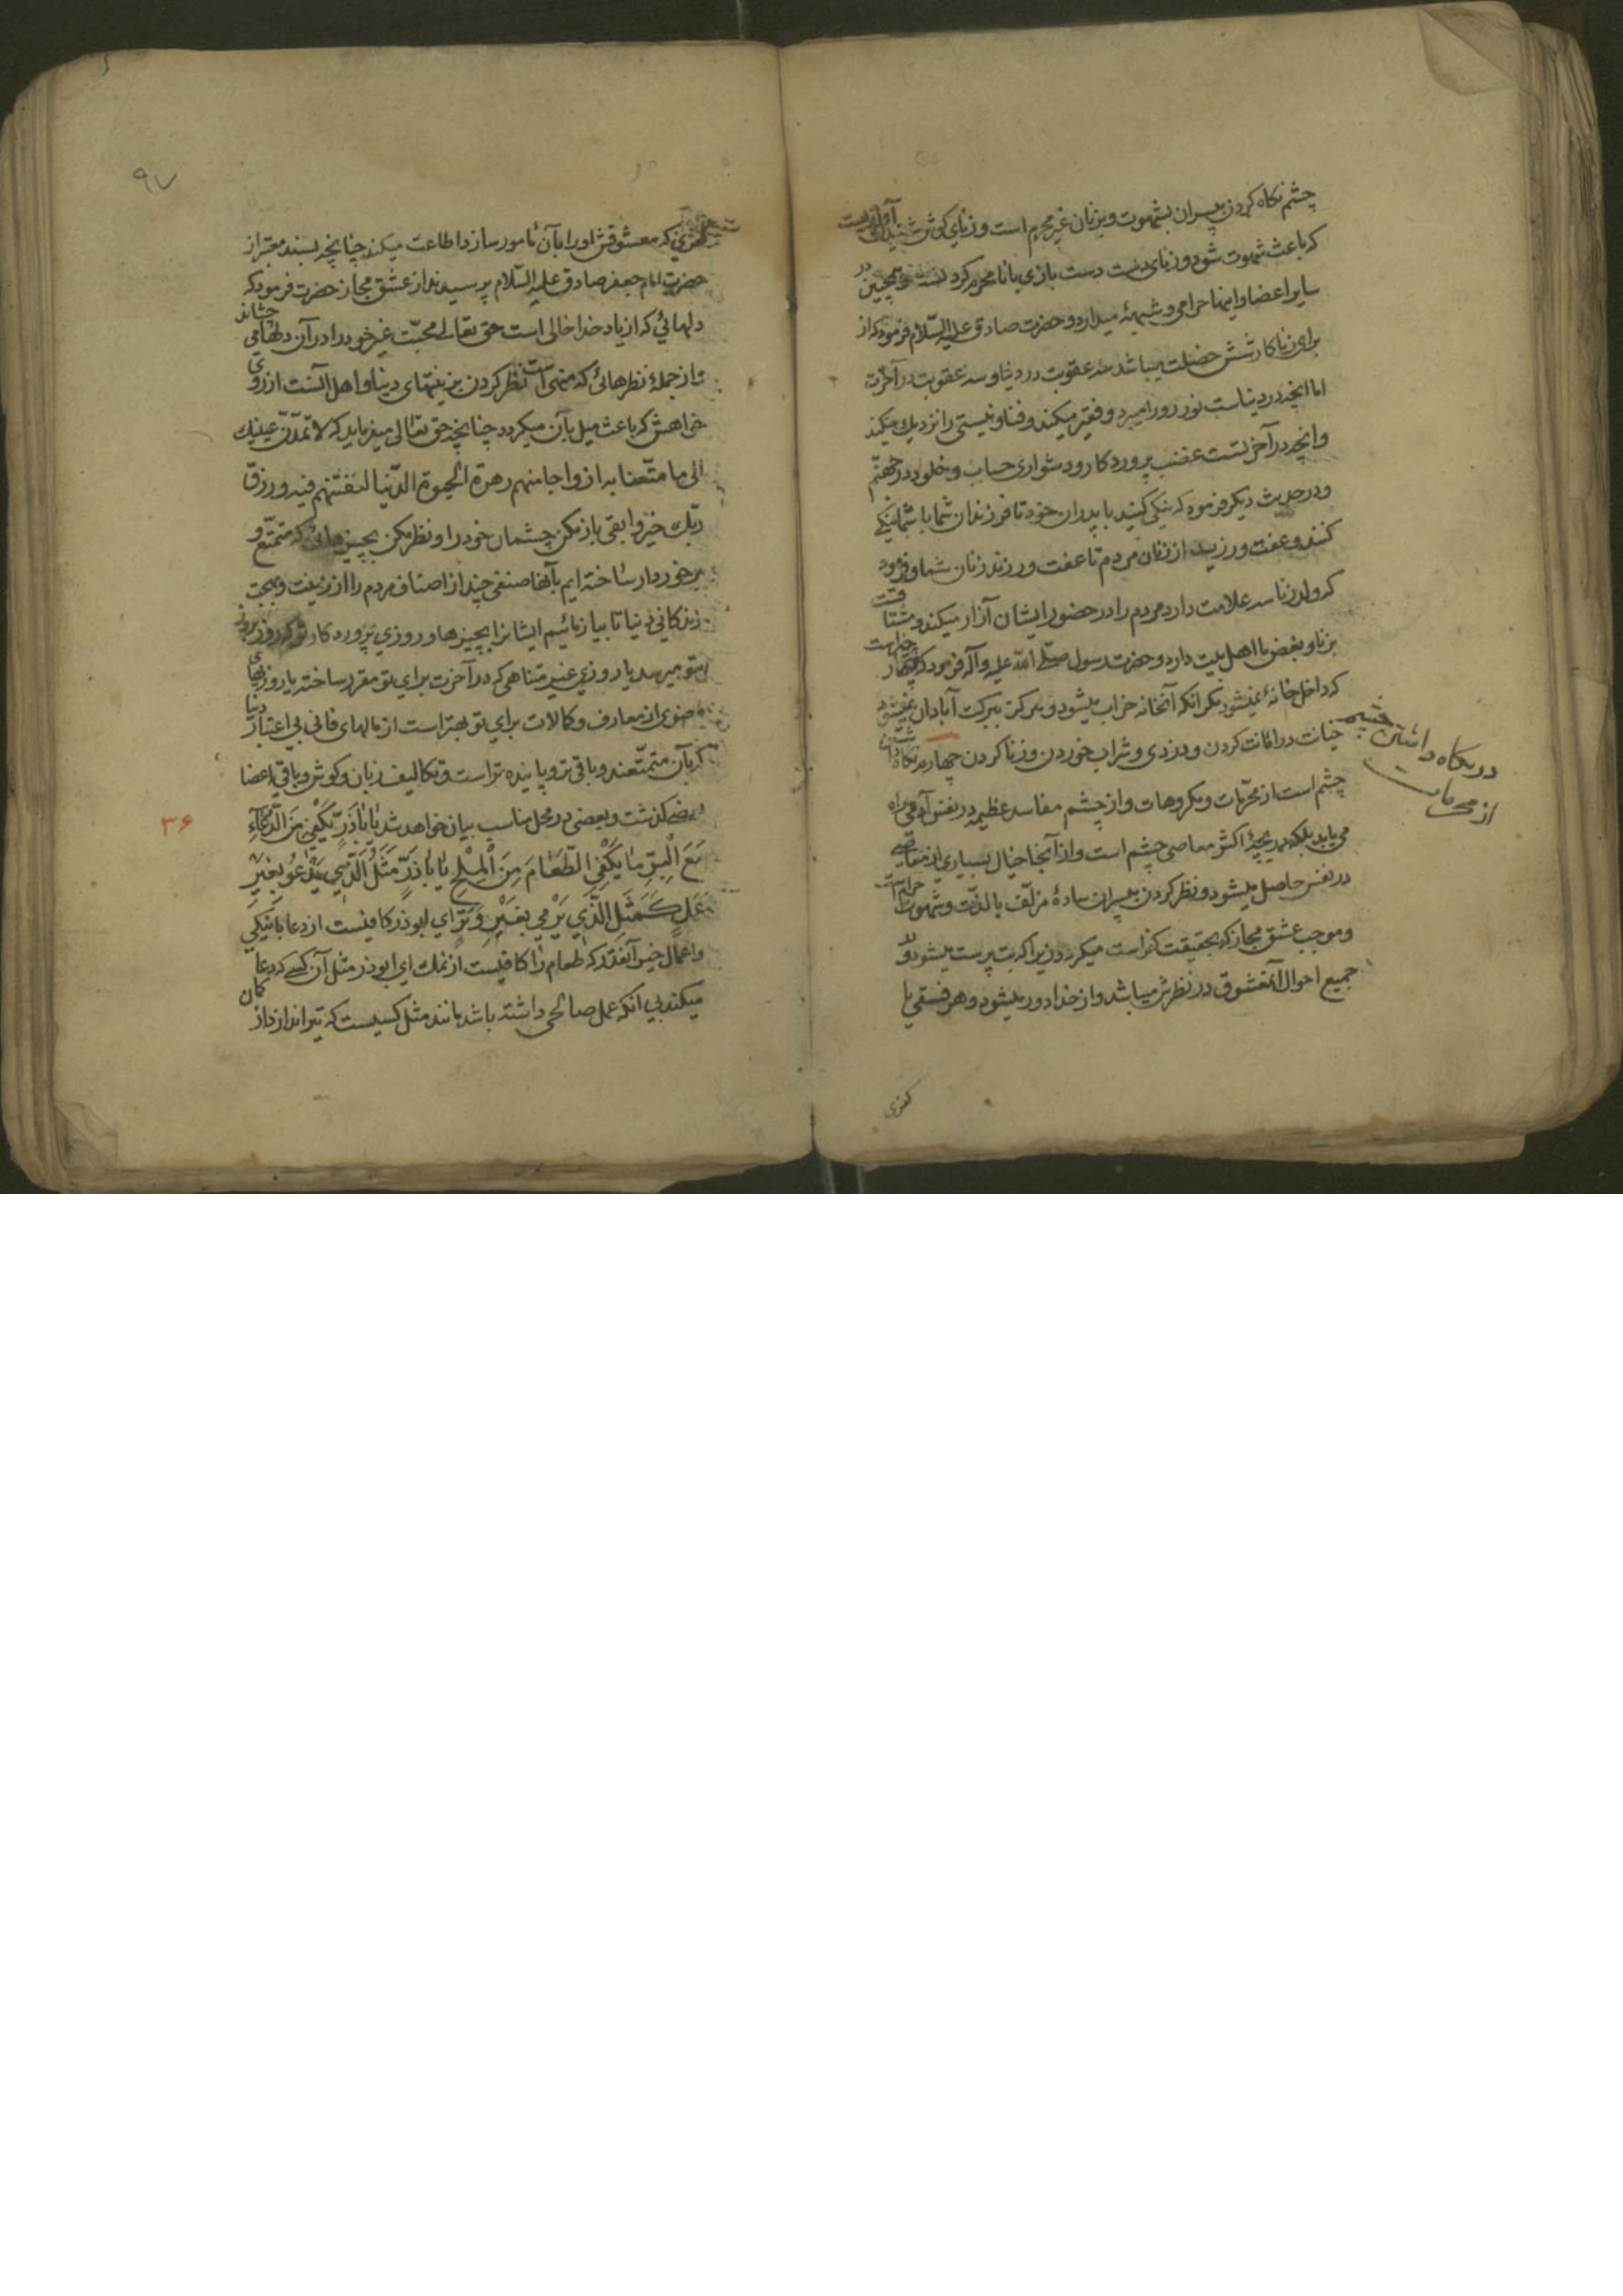 چشم نکاه کردن بپسران بشهوت و بزنان غیر محرم است و زنای کوش شنیدن آوازیست
که باعث شهوت شود و زنای دست دست بازی با نامحرم کردنست و همچنین در
سایر اعضا و اینها حرامی و شبهۀ میدارد و حضرت صادق علیه السّلام فرمود که از
برای زناکار شش خصلت میباشد سه عقوبت در دنیا و سه عقوبت در آخرت
اما انچه در دنیاست نور رو را میبرد و فقیر میکند و فنا و نیستی را نزدیك میکند
وانچه در آخرتست غضب پروردکار و دشواری حساب و خلود در جهنّم
و در حدیث دیکر فرمود که نیکی کنید با پدران خود تا فرزندان شما با شما نیکی
کنند و عفت ورزید از زنان مردم تا عفت ورزند زنان شما و فرمود
که ولد زنا سه علامت دارد مردم را در حضور ایشان آزار میکند و مشتاقست
بزنا و بغض ما اهل بیت دارد و حضرت رسول صلّی الله علیه وآله فرمود که چهار چیز است
که داخل خانۀ نمیشود مکر انکه آنخانه خراب میشود و هرکز ببرکت آبادان نمیشود
خیانت در امانت کردن و دزدی و شراب خوردن و زنا کردن چهارم نکاه داشتن
چشم است از محرّمات و مکروهات و از چشم مفاسد عظیمه در نفس آدمی راه
می یابد بلکه دریچۀ اکثر معاصی چشم است و از آنجا خیال بسیاری از معاصی
در نفس حاصل میشود و نظر کردن بپسران سادۀ مزلّف با لذّت و شهوت حرام است
و موجب عشق مجاز که بحقیقت کفر است میکردد زیرا که بت پرست میشود و
جمیع احوال آنمعشوق در نظرش میباشد و از خدا دور میشود و هر فسقی یا
در نکاه داشتن چشم
از محرمات
کفری
۹۷
کفری که معشوقش او را بآن مامور سازد اطاعت میکند چنانچه بسند معتبر از
حضرت امام جعفر صادق علیه السّلام پرسیدند از عشق مجاز حضرت فرمود که
دلهائی که از یاد خدا خالی است حق تعالی محبّت غیر خود را در آن دلها می چشاند
و از جملۀ نظرهائی که منهی است نظر کردن بزینتهای دنیا و اهل آنست از روی
خواهش که باعث میل بآن میکردد چنانچه حق تعالی میفرماید که لا تمدّنّ عینیك
الی ما متّعنا به ازواجا منهم زهرة الحیوة الدّنیا لنفتنهم فیه و رزق
ربّك خیر وابقی باز مکن چشمان خود را و نظر مکن بچیزهائی که متمتّع و
برخوردار ساخته ایم بآنها صنفی چند از اصناف مردم را از زینت و بهجت
زندکانی دنیا تا بیازمائیم ایشانرا بچیزها و روزی پروردکار تو که روز بروز
بتو میرسد یا روزی غیر متناهی که در آخرت برای تو مقرر ساخته یا روزیهای
معنوی از معارف و کمالات برای تو بهتر است از مالهای فانی بی اعتبار دنیا
که بآن متمتّعند و باقی تر و پاینده تر است و تکالیف زبان و کوش و باقی اعضا
بعضی کذشت و بعضی در محل مناسب بیان خواهد شد یَا بَاذَرٍّ یَکْفِی مِنَ الدُّعَآءِ
مَعَ الْبِرِّ مَا یَکْفِی الطَّعَامَ مِنَ الْمِلْحِ یَا بَاذَرٍّ مَثَلُ الَّذِی یَدْعُو بِغَیْرِ
عَمَلٍ کَمَثَلِ الَّذِی یَرْمِی بِغَیْرِ وَتَرٍ ای ابوذر کافیست از دعا با نیکی
واعمال خیر آنقدر که طعام را کافیست از نمك ای ابوذر مثل آن کسی که دعا
میکند بی انکه عمل صالحی داشته باشد مانند مثل کسیست که تیر اندازد از کمان
۳۶